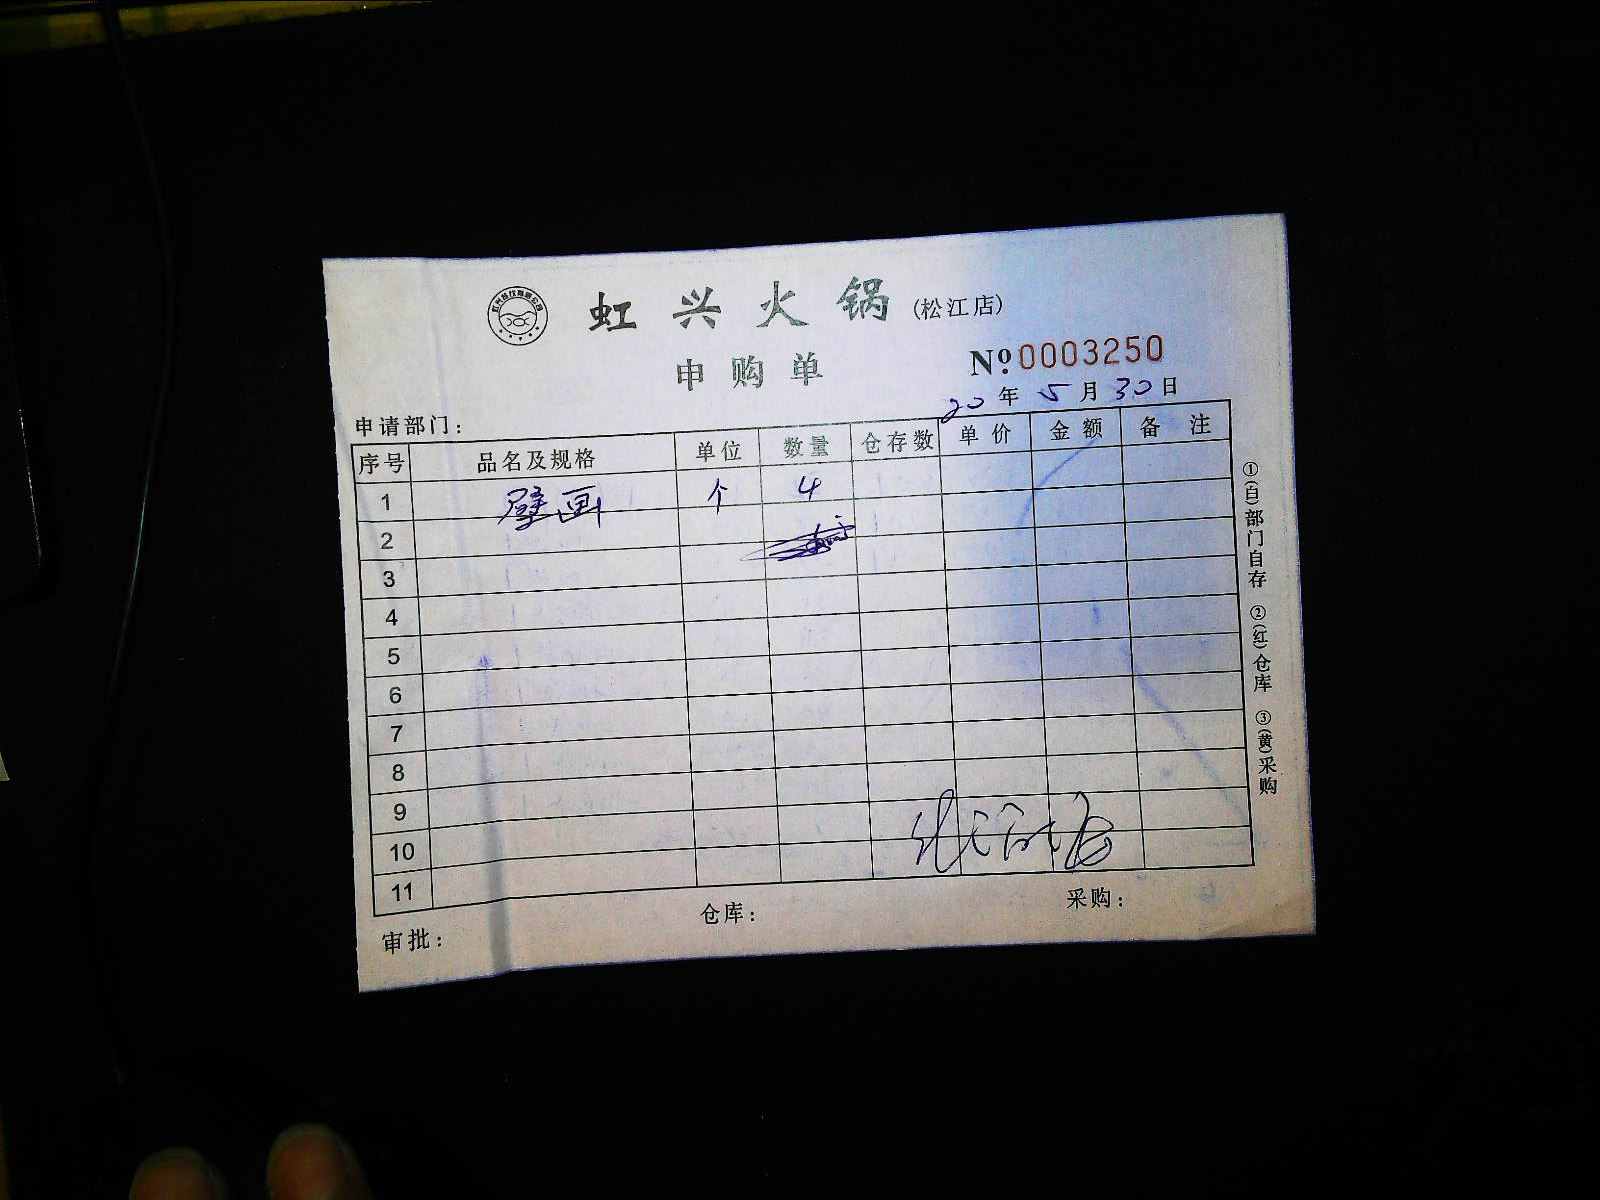 虹兴火锅(松江店)
申购单
Nº 0003250
20年5月30日
申请部门：
序号 品名及规格 单位 数量 仓存数 单价 金额 备注
1 壁画 个 4
2
3
4
5
6
7
8
9
10
11
审批： 仓库： 采购：
①(白)部门自存 ②(红)仓库 ③(黄)采购